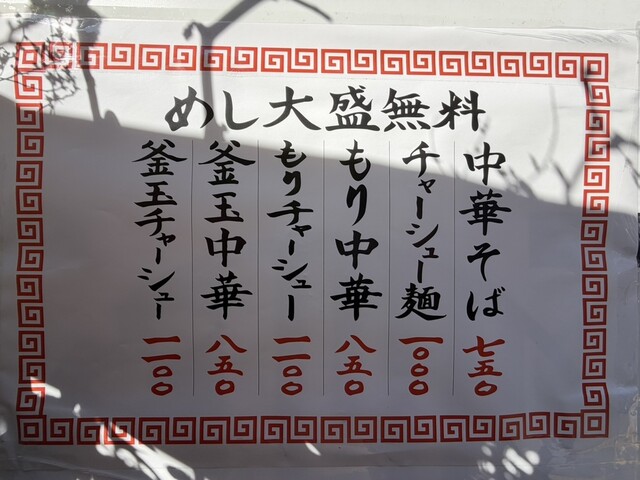 めし大盛無料
中華そば 七五〇
チャーシュー麺 一〇〇〇
もり中華 八五〇
もりチャーシュー 一一〇〇
釜玉中華 八五〇
釜玉チャーシュー 一一〇〇